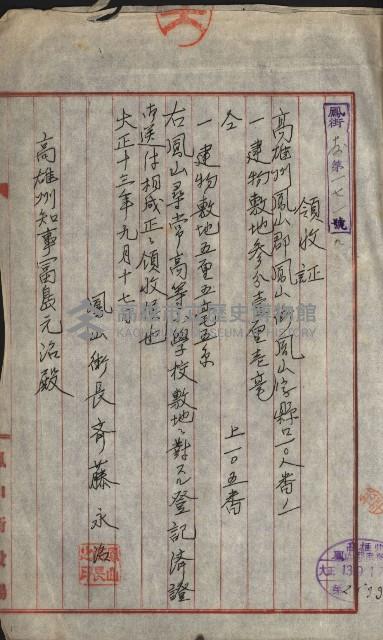 鳳街 第一七 號
領收証
高雄州鳳山郡鳳山街鳳山字縣口一〇八番ノ一
一 建物敷地參分壹厘壱毫
仝 上一〇五番
一 建物敷地五厘五毫五糸
右鳳山尋常高等小學校敷地ニ對スル登記済證
御送付相成正ニ領收候也
大正十三年九月十七
鳳山街長 斉藤永治
高雄州知事 富島元治殿
高雄市立歷史博物館
KAOHSIUNG MUSEUM OF HISTORY